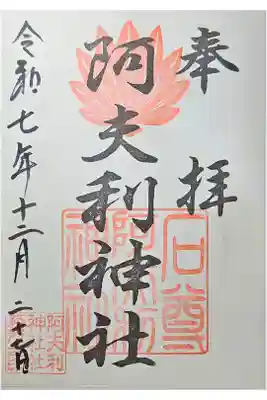 奉拝
阿夫利神社
令和七年十二月二十七日
石尊
阿夫利
神社